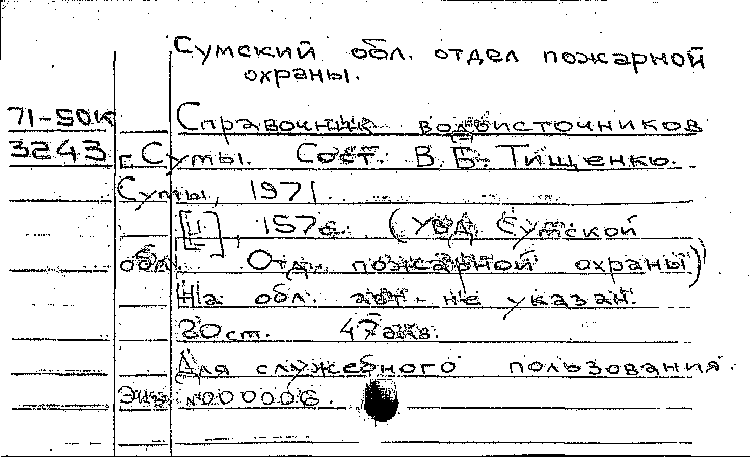 Сумский обл. отдел пожарной
охраны.
71-50к
Справочник водоисточников
3243
г. Сумы. Сост. В. Б. Тищенко.
Сумы, 1971
[II], 157с. (УВД Сумской
обл. Отд. пожарной охраны)
На обл. авт. не указан.
20 ст. 47экз.
Для служебного пользования.
Экз. №000006.